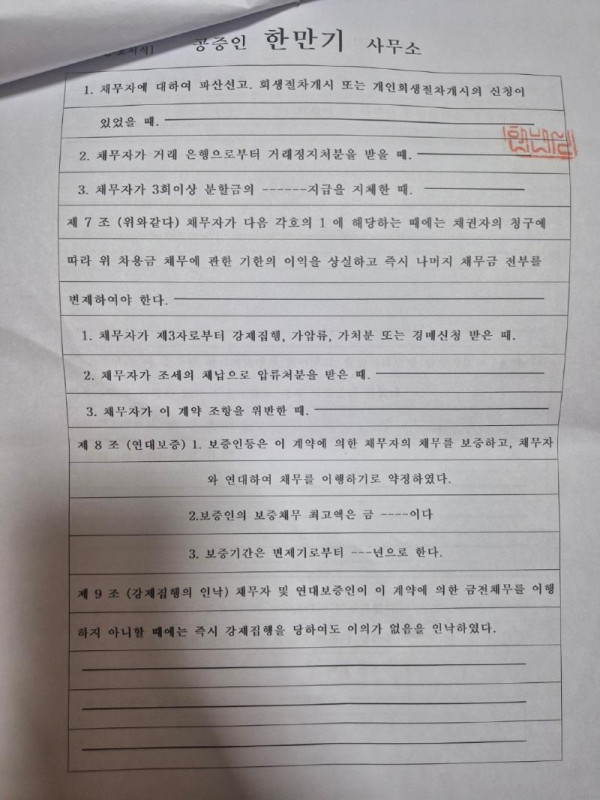 공증인 한만기 사무소
1. 채무자에 대하여 파산선고. 회생절차개시 또는 개인회생절차개시의 신청이
있었을 때.
2. 채무자가 거래 은행으로부터 거래정지처분을 받을 때.
3. 채무자가 3회이상 분할금의 ------지급을 지체한 때.
제 7 조 (위와같다) 채무자가 다음 각호의 1 에 해당하는 때에는 채권자의 청구에
따라 위 차용금 채무에 관한 기한의 이익을 상실하고 즉시 나머지 채무금 전부를
변제하여야 한다.
1. 채무자가 제3자로부터 강제집행, 가압류, 가처분 또는 경매신청 받은 때.
2. 채무자가 조세의 체납으로 압류처분을 받은 때.
3. 채무자가 이 계약 조항을 위반한 때.
제 8 조 (연대보증) 1. 보증인등은 이 계약에 의한 채무자의 채무를 보증하고, 채무자
와 연대하여 채무를 이행하기로 약정하였다.
2.보증인의 보증채무 최고액은 금 ----이다
3. 보증기간은 변제기로부터 ---년으로 한다.
제 9 조 (강제집행의 인낙) 채무자 및 연대보증인이 이 계약에 의한 금전채무를 이행
하지 아니할 때에는 즉시 강제집행을 당하여도 이의가 없음을 인낙하였다.